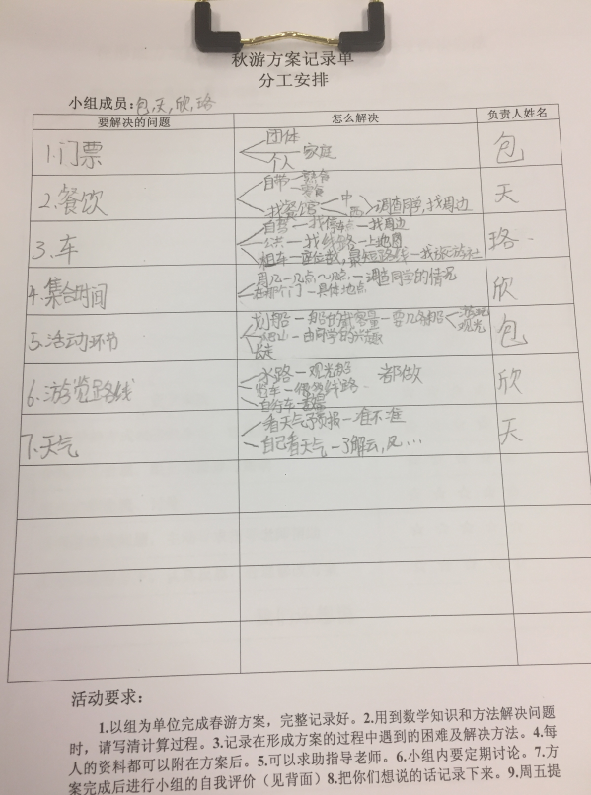 秋游方案记录单
分工安排
小组成员:包,天,欣,珞
要解决的问题 怎么解决 负责人姓名
1.门票 团体 个人 家庭 包
2.餐饮 自带 零食 找餐馆 中 西 调查同学,找周边 天
3.车 自驾—找停车点—找周边 珞
公共—找线路—上地图
租车—座位数,最短路线—找旅游社
4.集合时间 周几—几点~几点—调查同学的情况 欣
在那个门—具体地点
5.活动环节 划船—船的载容量—要几条船 游玩 观光 包
爬山—由同学的兴趣
6.游览路线 水路—观光船 都做 欣
自行车
7.天气 看天气预报—准不准 天
自己看天气—了解云,风…
活动要求:
1.以组为单位完成春游方案,完整记录好。2.用到数学知识和方法解决问题
时,请写清计算过程。3.记录在形成方案的过程中遇到的困难及解决方法。4.每
人的资料都可以附在方案后。5.可以求助指导老师。6.小组内要定期讨论。7.方
案完成后进行小组的自我评价(见背面)8.把你们想说的话记录下来。9.周五提